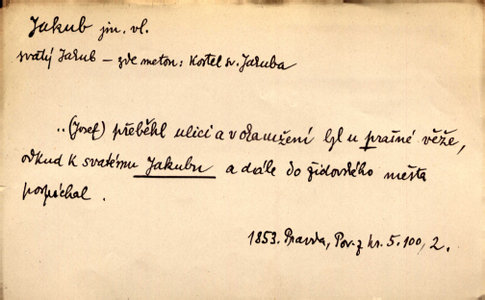 Jakub jm. vl.
svatý Jakub – zde meton: Kostel sv. Jakuba
..(Josef) přeběhl ulici a v okamžení byl u prašné věže,
odkud k svatému Jakubu a dále do židovského města
pospíchal.
1853. Pravda, Pov. z kr. 5. 100, 2.